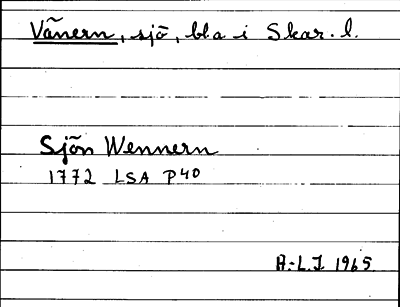 Vänern, sjö, bla i Skar. l.
Sjön Wennern
1772 LSA P40
A.-L.J. 1965